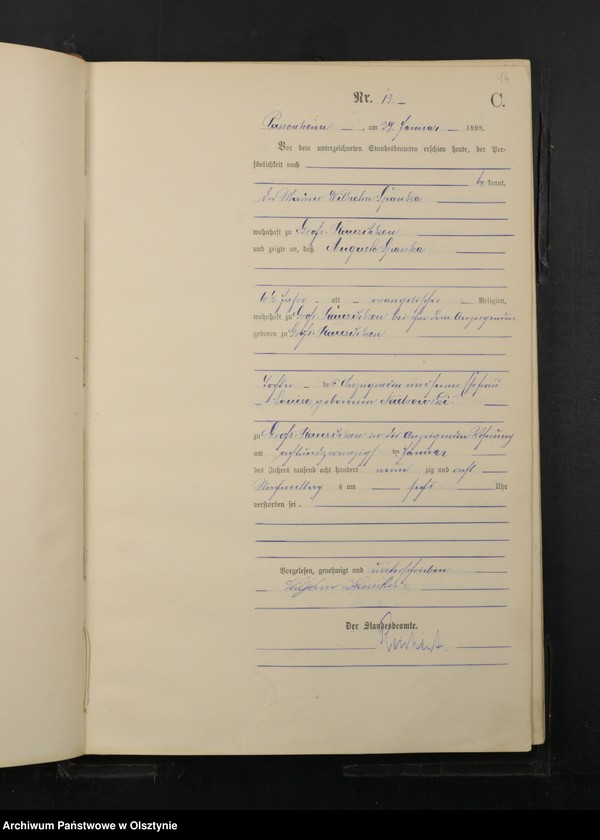 14
Nr. 13. C.
Passenheim, am 29. Januar 1898.
Vor dem unterzeichneten Standesbeamten erschien heute, der Per-
sönlichkeit nach
be kannt,
der Wilhelm
wohnhaft zu Groß-
und zeigte an, daß Auguste
6½ Jahr alt evangelischer Religion,
wohnhaft zu Groß- bei ihm dem Anzeigenden
geboren zu Groß-
Tochter des Anzeigenden und seiner Ehefrau
Louise geborenen
zu Groß- in der Anzeigenden Wohnung
am achtundzwanzigsten Januar
des Jahres tausend acht hundert neun zig und acht
Nachmittags um sechs Uhr
verstorben sei.
Vorgelesen, genehmigt und unterschrieben
Wilhelm
Der Standesbeamte.
Archiwum Państwowe w Olsztynie